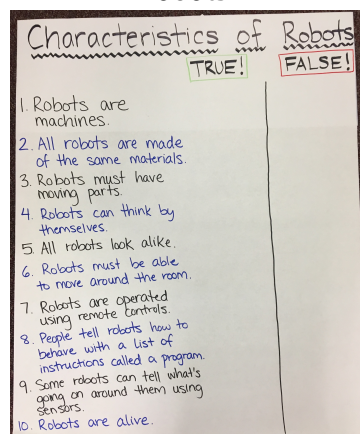 Characteristics of Robots
TRUE! FALSE!
1. Robots are
machines.
2. All robots are made
of the same materials.
3. Robots must have
moving parts.
4. Robots can think by
themselves.
5. All robots look alike.
6. Robots must be able
to move around the room.
7. Robots are operated
using remote controls.
8. People tell robots how to
behave with a list of
instructions called a program.
9. Some robots can tell what's
going on around them using
sensors.
10. Robots are alive.